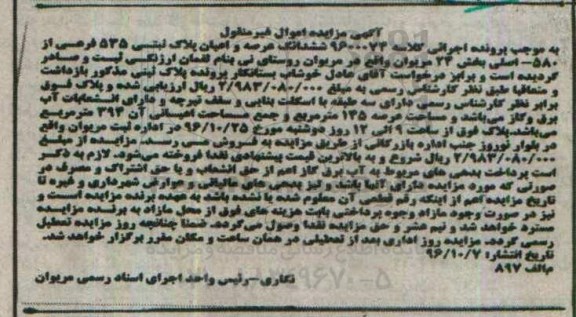 آگهی مزایده اموال غیرمنقول
به موجب پرونده اجرائی کلاسه ۹۶۰۰۰۷۴ ششدانگ عرصه و اعیان پلاک ثبتی ۵۳۵ فرعی از
۵۸۰- اصلی بخش ۲۳ مریوان واقع در مریوان روستای نی بنام لقمان ارزنگی ثبت و صادر
گردیده است و برابر درخواست آقای عادل خوشاب بستانکار پرونده پلاک ثبتی مذکور بازداشت
و متعاقبا طبق نظر کارشناس رسمی به مبلغ ۲/۹۸۳/۰۸۰/۰۰۰ ریال ارزیابی شده و پلاک فوق
برابر نظر کارشناس رسمی دارای سه طبقه با اسکلت بنایی و سقف تیرچه و دارای انشعابات آب
برق وگاز می‌باشد و مساحت عرصه ۱۳۵ مترمربع و جمع مساحت اعیانی آن ۳۹۴ مترمربع
می‌باشد.پلاک فوق از ساعت ۹ الی ۱۲ روز دوشنبه مورخ ۹۶/۱۰/۲۵ در اداره ثبت مریوان واقع
در بلوار نوروز جنب اداره بازرگانی از طریق مزایده به فروش می رسد. مزایده از مبلغ
۲/۹۸۳/۰۸۰/۰۰۰ ریال شروع و به بالاترین قیمت پیشنهادی نقدا فروخته می‌شود. لازم به ذکر
است پرداخت بدهی های مربوط به آب برق گاز اعم از حق انشعاب و یا حق اشتراک و مصرف در
صورتی که مورد مزایده دارای آنها باشد و نیز بدهی های مالیاتی و عوارض شهرداری و غیره تا
تاریخ مزایده اعم از اینکه رقم قطعی آن معلوم شده یا نشده باشد به عهده برنده مزایده است و
نیز در صورت وجود مازاد وجوه پرداختی بابت هزینه های فوق از محل مازاد به برنده مزایده
مسترد خواهد شد و نیم عشر و حق مزایده نقدا وصول می‌گردد. ضمنا چنانچه روز مزایده تعطیل
رسمی گردد. مزایده روز اداری بعد از تعطیلی در همان ساعت و مکان مقرر برگزار خواهد شد.
تاریخ انتشار: ۹۶/۱۰/۷
م‌الف ۸۹۷
نگاری-رئیس واحد اجرای اسناد رسمی مریوان